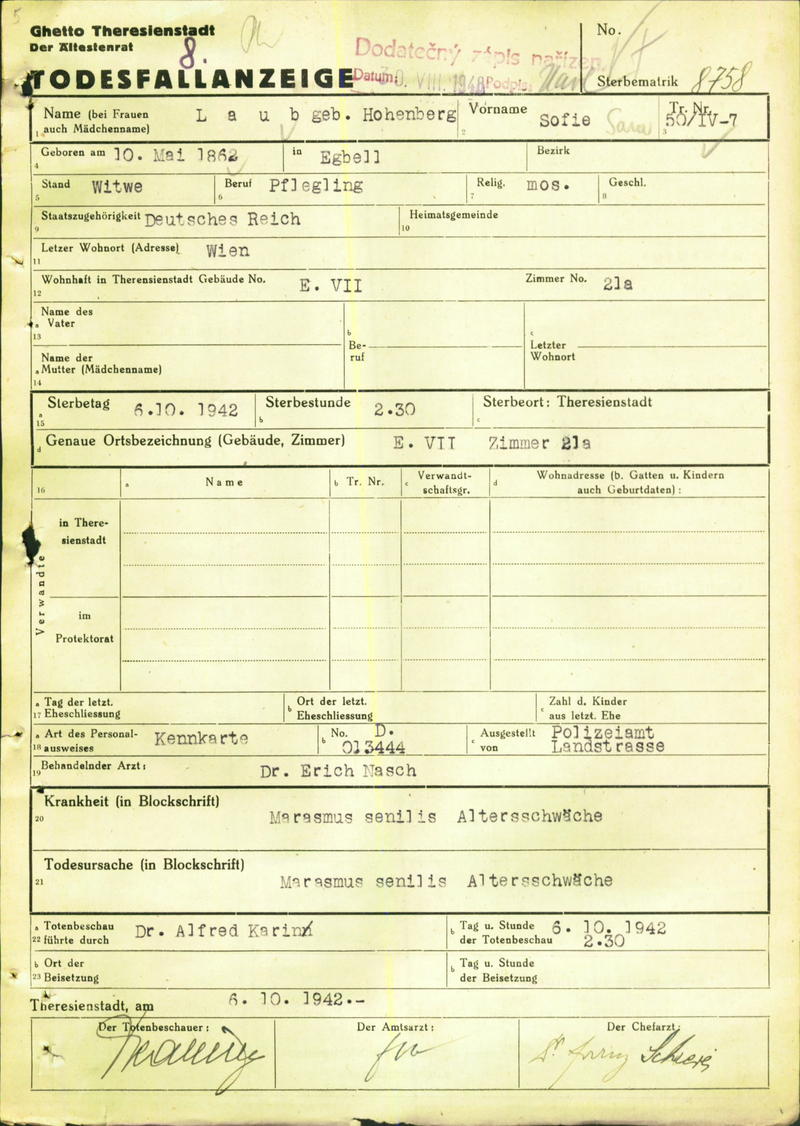 Ghetto Theresienstadt
Der Ältestenrat
8.
No.
Dodatečný zápis nařízen
TODESFALLANZEIGE
Datum: VIII. 1948 Podpis
Sterbematrik 8758
Name (bei Frauen auch Mädchenname) Laub geb. Hohenberg Vorname Sofie Sara Tr. Nr. 50/IV-7
1 2 3
Geboren am 10. Mai 1862 in Egbell Bezirk
4
Stand Witwe Beruf Pflegling Relig. mos. Geschl.
5 6 7 8
Staatszugehörigkeit Deutsches Reich Heimatsgemeinde
9 10
Letzer Wohnort (Adresse) Wien
11
Wohnhaft in Therensienstadt Gebäude No. E. VII Zimmer No. 21a
12
Name des
a Vater
13
b Beruf
c Letzter Wohnort
Name der
a Mutter (Mädchenname)
14
Sterbetag 6.10. 1942 Sterbestunde 2.30 Sterbeort: Theresienstadt
a 15 b c
d Genaue Ortsbezeichnung (Gebäude, Zimmer) E. VII Zimmer 21a
16 a Name b Tr. Nr. c Verwandtschaftsgr. d Wohnadresse (b. Gatten u. Kindern auch Geburtdaten):
Verwandte
in Theresienstadt
im Protektorat
a Tag der letzt. b Ort der letzt. Zahl d. Kinder
17 Eheschliessung Eheschliessung c aus letzt. Ehe
a Art des Personal- Kennkarte b No. D. c Ausgestellt Polizeiamt
18 ausweises 013444 von Landstrasse
19 Behandelnder Arzt: Dr. Erich Nasch
Krankheit (in Blockschrift)
20 Marasmus senilis Altersschwäche
Todesursache (in Blockschrift)
21 Marasmus senilis Altersschwäche
a Totenbeschau Dr. Alfred Karin b Tag u. Stunde 6. 10. 1942
22 führte durch der Totenbeschau 2.30
b Ort der b Tag u. Stunde
23 Beisetzung der Beisetzung
Theresienstadt, am 6. 10. 1942.-
Der Totenbeschauer: Der Amtsarzt: Der Chefarzt:
Dr. Franz